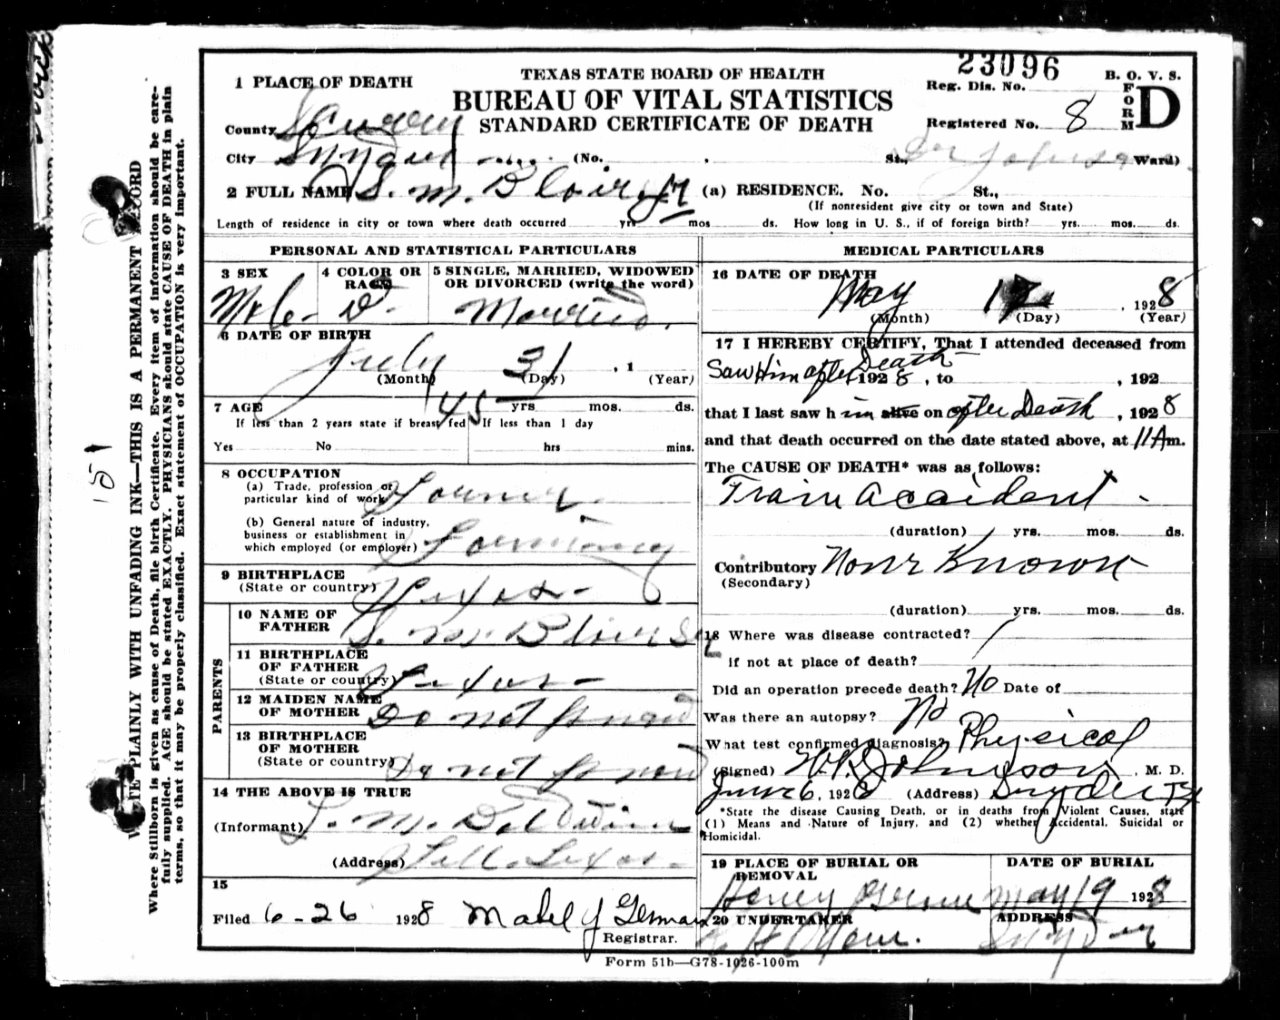 23096
TEXAS STATE BOARD OF HEALTH
BUREAU OF VITAL STATISTICS
STANDARD CERTIFICATE OF DEATH
Reg. Dis. No.
Registered No. 8
B. O. V. S.
FORM D
1 PLACE OF DEATH
County Scurry
City Snyder (No. St., Ward)
2 FULL NAME S. M. Blair Jr (a) RESIDENCE. No. St.,
(If nonresident give city or town and State)
Length of residence in city or town where death occurred yrs mos ds. How long in U. S., if of foreign birth? yrs. mos. ds.
PERSONAL AND STATISTICAL PARTICULARS
3 SEX
4 COLOR OR RACE
5 SINGLE, MARRIED, WIDOWED OR DIVORCED (write the word)
Married.
6 DATE OF BIRTH
July 31, 1
(Month) (Day) (Year)
7 AGE 45 yrs mos. ds.
If less than 2 years state if breast fed If less than 1 day
Yes No hrs mins.
8 OCCUPATION
(a) Trade, profession or
particular kind of work Farmer
(b) General nature of industry,
business or establishment in
which employed (or employer) Farming
9 BIRTHPLACE
(State or country) Texas
PARENTS
10 NAME OF FATHER S. M. Blair Sr
11 BIRTHPLACE OF FATHER
(State or country) Texas
12 MAIDEN NAME OF MOTHER Do not know
13 BIRTHPLACE OF MOTHER
(State or country) Do not know
14 THE ABOVE IS TRUE
(Informant)
(Address) Texas
15
Filed 6-26 1928 Mabel Y German
Registrar.
MEDICAL PARTICULARS
16 DATE OF DEATH
May , 1928
(Month) (Day) (Year)
17 I HEREBY CERTIFY, That I attended deceased from
Saw Him after Death 1928, to , 192
that I last saw him alive on after Death, 1928
and that death occurred on the date stated above, at 11 Am.
The CAUSE OF DEATH* was as follows:
Train accident
(duration) yrs. mos. ds.
Contributory None Known
(Secondary)
(duration) yrs. mos. ds.
18 Where was disease contracted?
if not at place of death?
Did an operation precede death? No Date of
Was there an autopsy? No
What test confirmed diagnosis? Physical
(Signed) Johnson, M. D.
June 6, 1928 (Address) Snyder Tx
*State the disease Causing Death, or in deaths from Violent Causes, state
(1) Means and Nature of Injury, and (2) whether Accidental, Suicidal or
Homicidal.
19 PLACE OF BURIAL OR REMOVAL
DATE OF BURIAL
May 19 1928
20 UNDERTAKER
ADDRESS
Snyder
Form 51b—G78-1026-100m
WRITE PLAINLY WITH UNFADING INK—THIS IS A PERMANENT RECORD
Where Stillborn is given as cause of Death, file birth Certificate. Every item of information should be care-
fully supplied. AGE should be stated EXACTLY. PHYSICIANS should state CAUSE OF DEATH in plain
terms, so that it may be properly classified. Exact statement of OCCUPATION is very important.
151